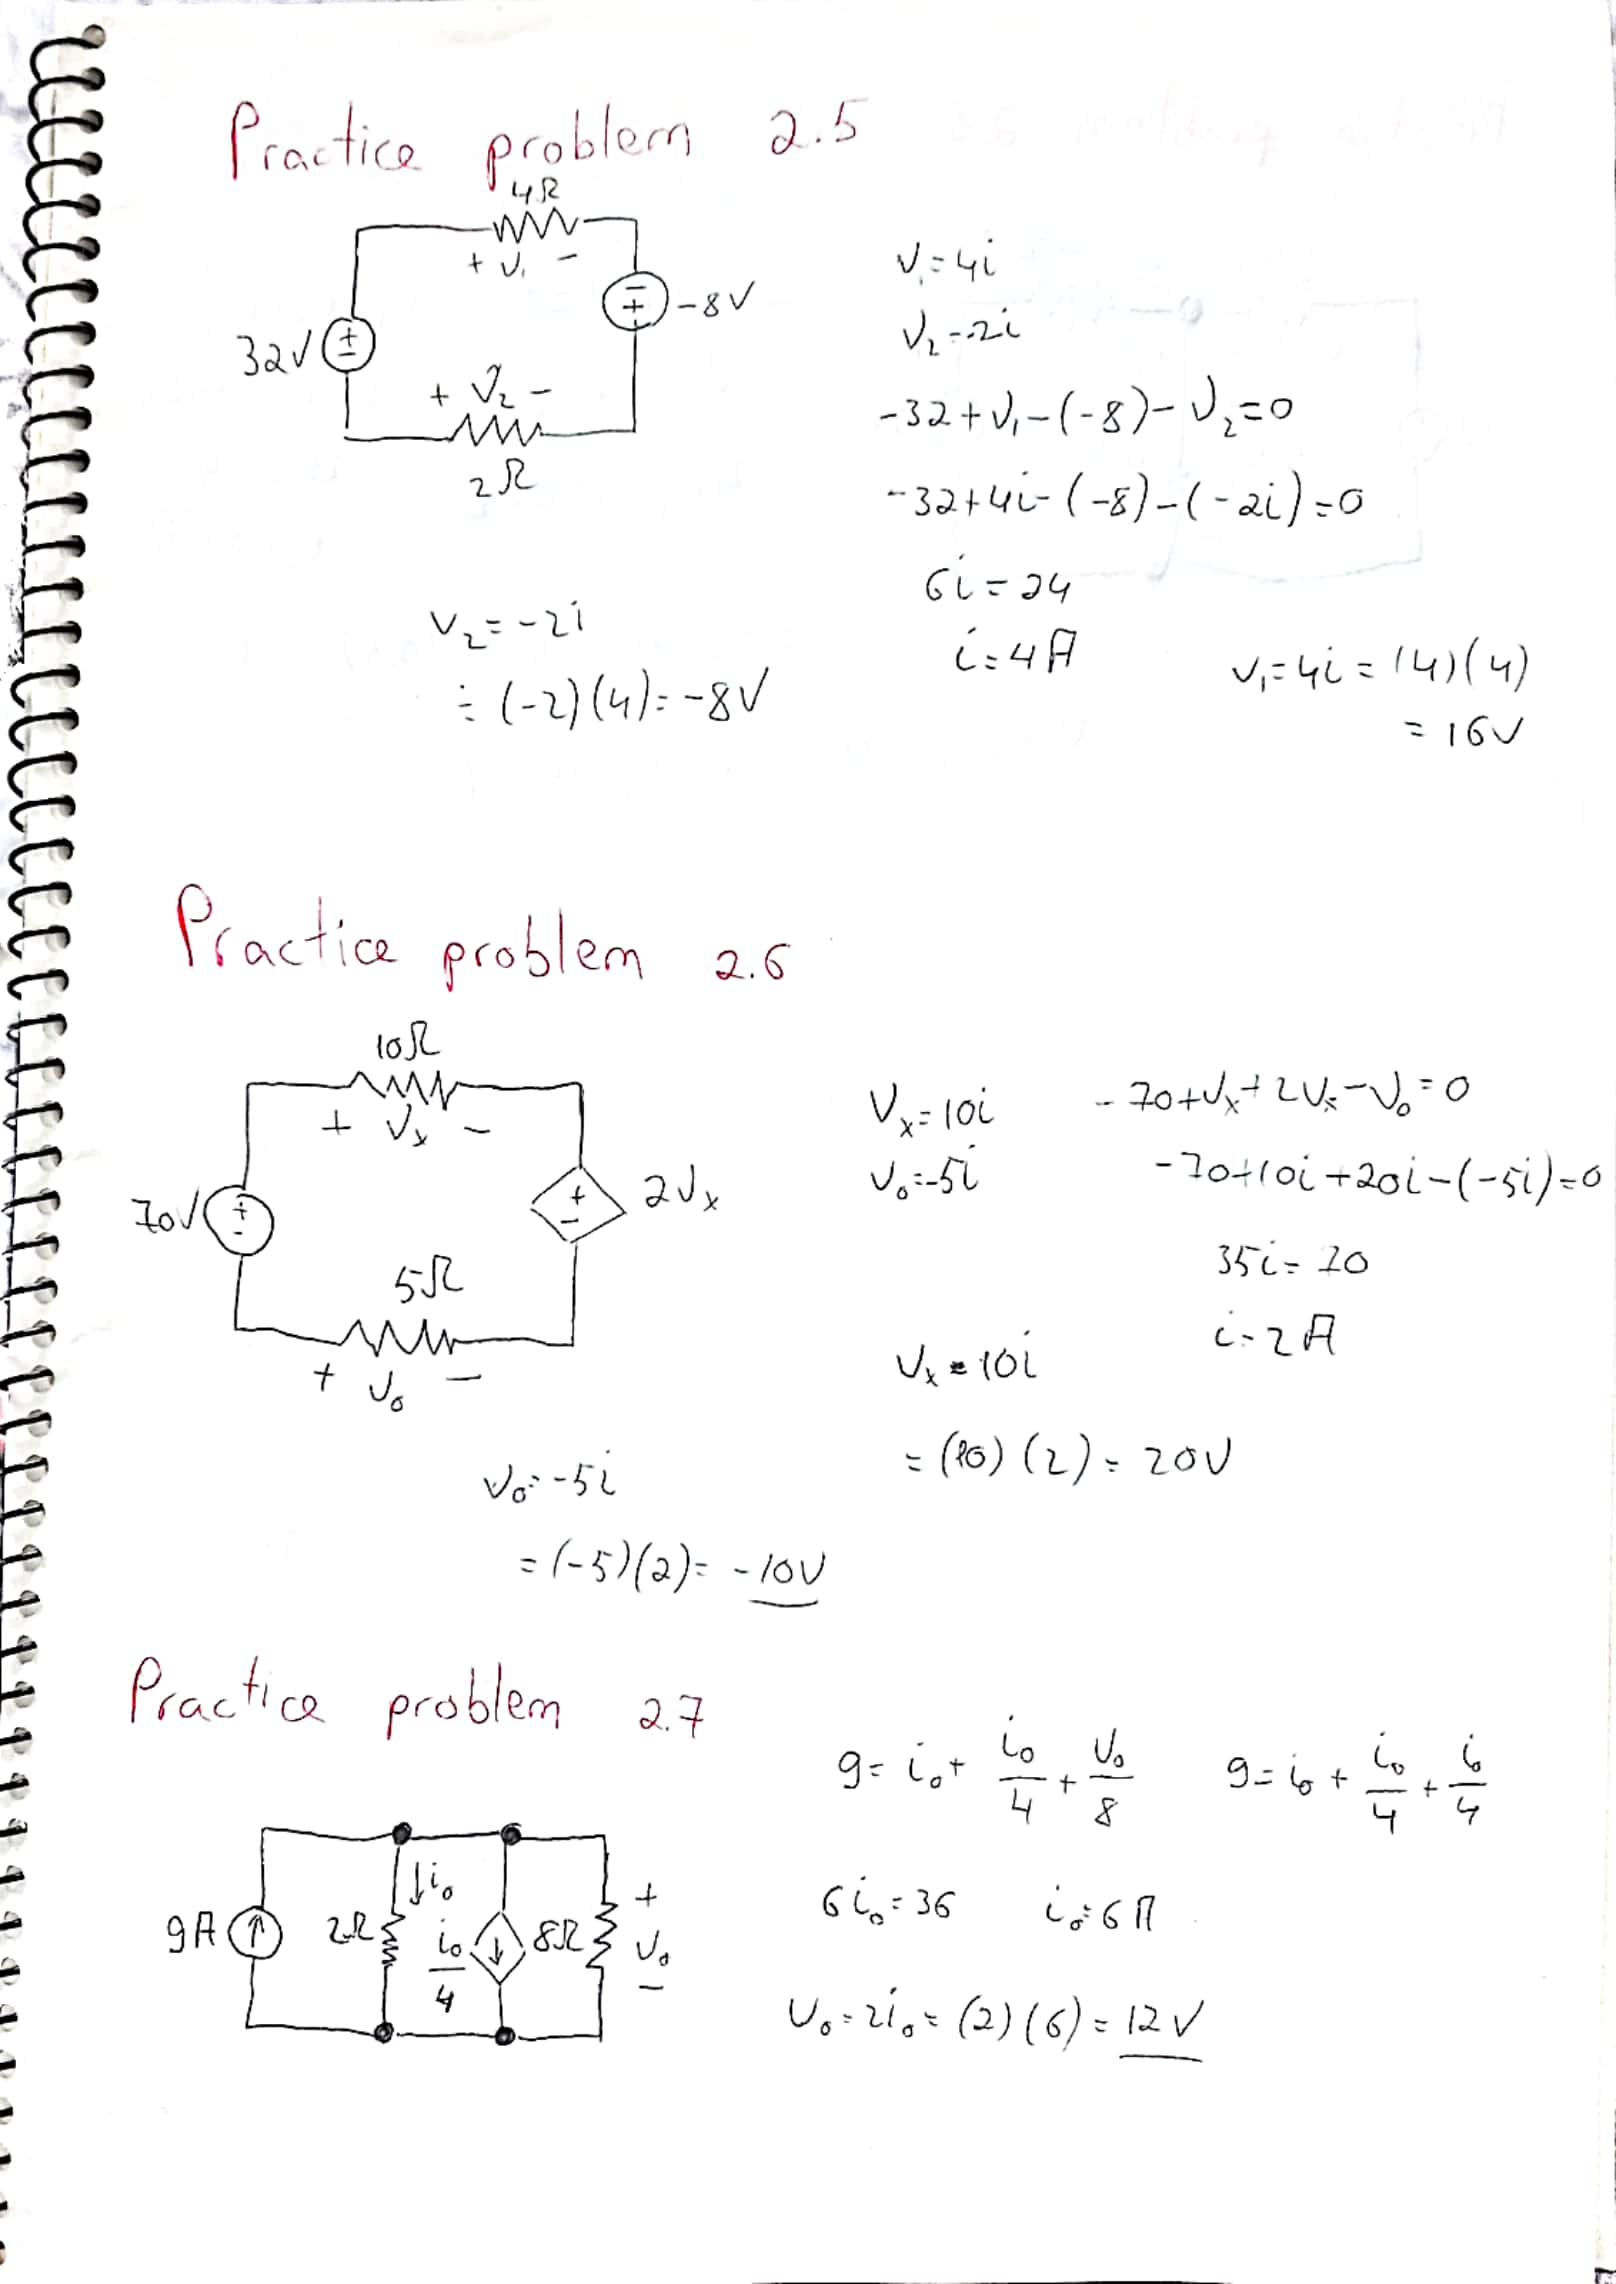 Practice problem 2.5
4Ω
+ V₁ -
- + -8V
32V + -
+ V₂ -
2Ω
V₁=4i
V₂=-2i
-32+V₁-(-8)-V₂=0
-32+4i-(-8)-(-2i)=0
6i=24
i=4A
V₁=4i=(4)(4)
=16V
V₂=-2i
=(-2)(4)=-8V
Practice problem 2.6
10Ω
+ Vₓ -
70V + -
+ - 2Vₓ
5Ω
+ V₀ -
Vₓ=10i
V₀=-5i
-70+Vₓ+2Vₓ-V₀=0
-70+10i+20i-(-5i)=0
35i=70
i=2A
Vₓ=10i
=(10)(2)=20V
V₀=-5i
=(-5)(2)=-10V
Practice problem 2.7
9A 2Ω ↓i₀ i₀/4 8Ω + V₀ -
9=i₀+i₀/4+V₀/8 9=i₀+i₀/4+i₀/4
6i₀=36 i₀=6A
V₀=2i₀=(2)(6)=12V